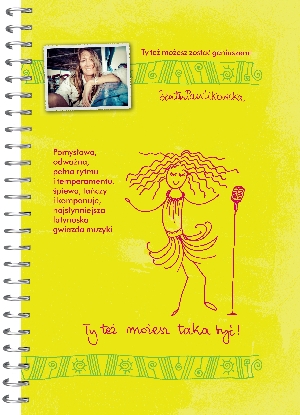 Ty też możesz zostać geniuszem
Beata Pawlikowska
Pomysłowa,
odważna,
pełna rytmu
i temperamentu,
śpiewa, tańczy
i komponuje,
najsłynniejsza
latynoska
gwiazda muzyki
Ty też możesz taka być!